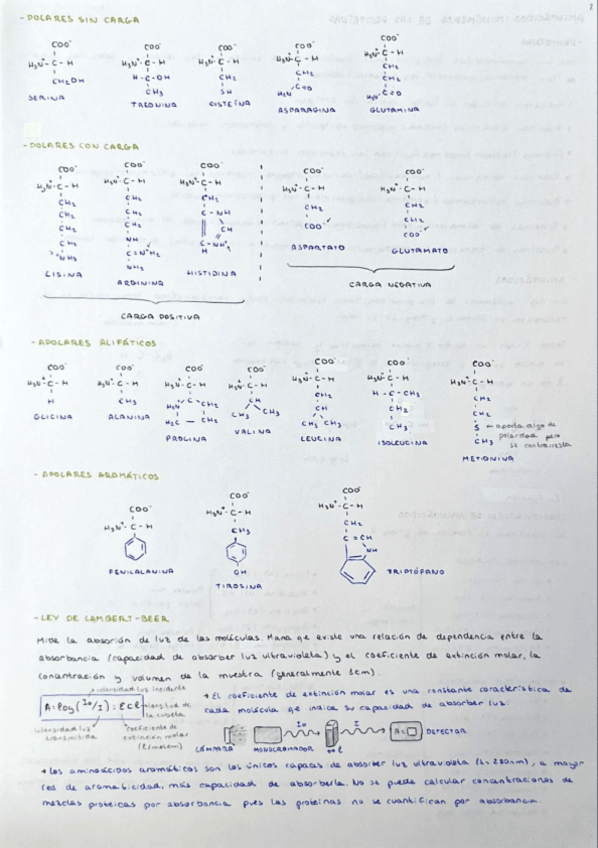 - POLARES SIN CARGA
COO⁻ COO⁻ COO⁻ COO⁻ COO⁻
H₃N⁺- C - H H₃N⁺- C - H H₃N⁺- C - H H₃N⁺- C - H H₃N⁺- C - H
CH₂OH H - C - OH CH₂ CH₂ CH₂
CH₃ SH C=O CH₂
H₂N C=O
H₂N
SERINA TREONINA CISTEÍNA ASPARAGINA GLUTAMINA
- POLARES CON CARGA
COO⁻ COO⁻ COO⁻ COO⁻ COO⁻
H₃N⁺- C - H H₃N⁺- C - H H₃N⁺- C - H H₃N⁺- C - H H₃N⁺- C - H
CH₂ CH₂ CH₂ CH₂ CH₂
CH₂ CH₂ C - NH COO⁻ CH₂
CH₂ CH₂ CH COO⁻
CH₂ NH C - NH⁺
NH₃ C = N⁺H₂ H
NH₂
LISINA ARGININA HISTIDINA ASPARTATO GLUTAMATO
CARGA POSITIVA CARGA NEGATIVA
- APOLARES ALIFÁTICOS
COO⁻ COO⁻ COO⁻ COO⁻ COO⁻ COO⁻ COO⁻
H₃N⁺- C - H H₃N⁺- C - H H₃N⁺- C - H H₃N⁺- C - H H₃N⁺- C - H H₃N⁺- C - H H₃N⁺- C - H
H CH₃ CH₂ CH CH₂ H - C - CH₃ CH₂
H₂C - CH₂ CH₃ CH₃ CH CH₂ CH₂
CH₃ CH₃ CH₃ S ← aporta algo de
CH₃ polaridad pero
se contrarresta
GLICINA ALANINA PROLINA VALINA LEUCINA ISOLEUCINA METIONINA
- APOLARES AROMÁTICOS
COO⁻ COO⁻ COO⁻
H₃N⁺- C - H H₃N⁺- C - H H₃N⁺- C - H
CH₂ CH₂
C = CH
NH
OH
FENILALANINA TIROSINA TRIPTÓFANO
- LEY DE LAMBERT-BEER
Mide la absorción de luz de las moléculas. Mana qe existe una relación de dependencia entre la
absorbancia (capacidad de absorber luz ultravioleta) y el coeficiente de extinción molar, la
concentración y volumen de la muestra (generalmente 1cm).
intensidad luz incidente
A = log (I₀/I) = ε c l → longitud de la cubeta
intensidad luz transmitida
coeficiente de extinción molar (l/molcm)
• El coeficiente de extinción molar es una constante característica de
cada molécula qe indica su capacidad de absorber luz.
LÁMPARA MONOCROMADOR I₀ I A= DETECTOR
• Los aminoácidos aromáticos son los únicos capaces de absorber luz ultravioleta (λ=280nm), a mayor
red de aromaticidad, más capacidad de absorberla. No se puede calcular concentraciones de
mezclas proteicas por absorbancia pues las proteínas no se cuantifican por absorbancia.